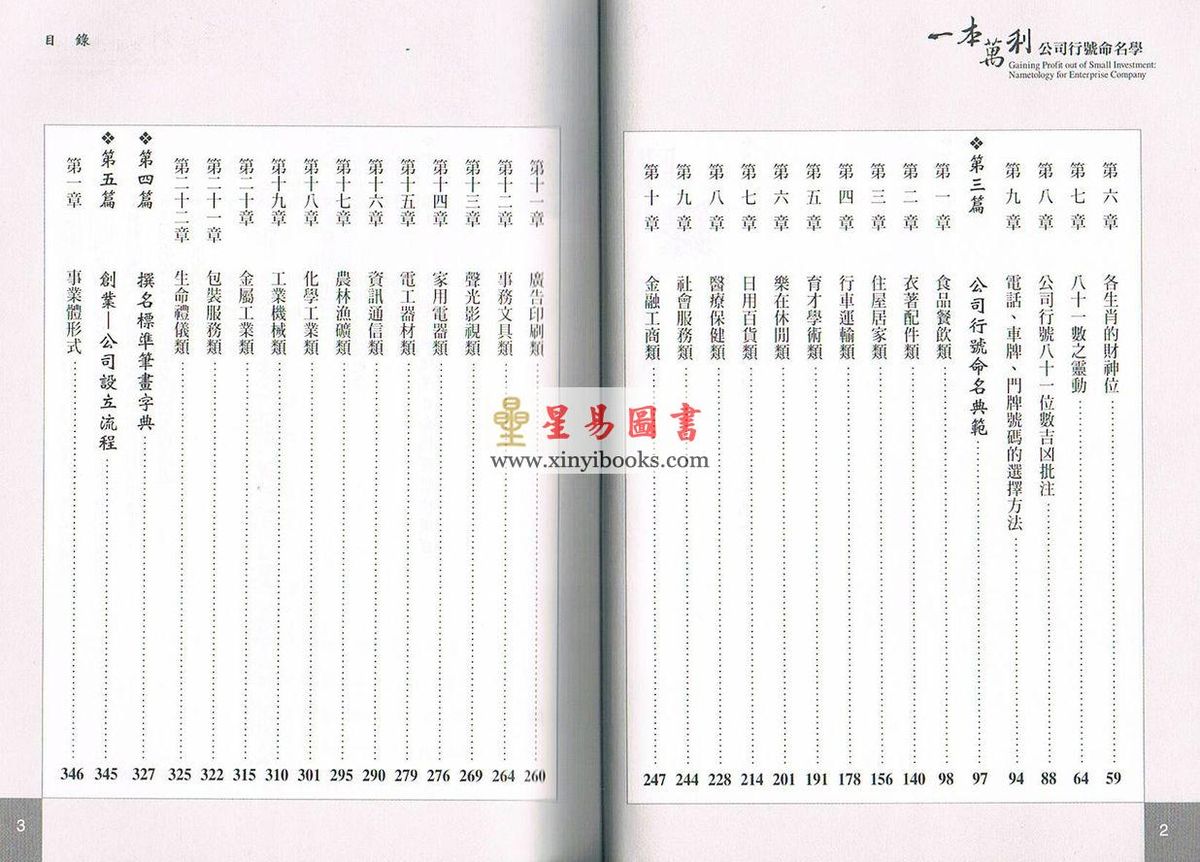 一本萬利 公司行號命名學
Gaining Profit out of Small Investment:
Nametology for Enterprise Company
第六章 各生肖的財神位 59
第七章 八十一數之靈動 64
第八章 公司行號八十一位數吉凶批注 88
第九章 電話、車牌、門牌號碼的選擇方法 94
❖第三篇 公司行號命名典範 97
第一章 食品餐飲類 98
第二章 衣著配件類 140
第三章 住屋居家類 156
第四章 行車運輸類 178
第五章 育才學術類 191
第六章 樂在休閒類 201
第七章 日用百貨類 214
第八章 醫療保健類 228
第九章 社會服務類 244
第十章 金融工商類 247
2
目錄
第十一章 廣告印刷類 260
第十二章 事務文具類 264
第十三章 聲光影視類 269
第十四章 家用電器類 276
第十五章 電工器材類 279
第十六章 資訊通信類 290
第十七章 農林漁礦類 295
第十八章 化學工業類 301
第十九章 工業機械類 310
第二十章 金屬工業類 315
第二十一章 包裝服務類 322
第二十二章 生命禮儀類 325
❖第四篇 撰名標準筆畫字典 327
❖第五篇 創業—公司設立流程 345
第一章 事業體形式 346
3
星易圖書
www.xinyibooks.com